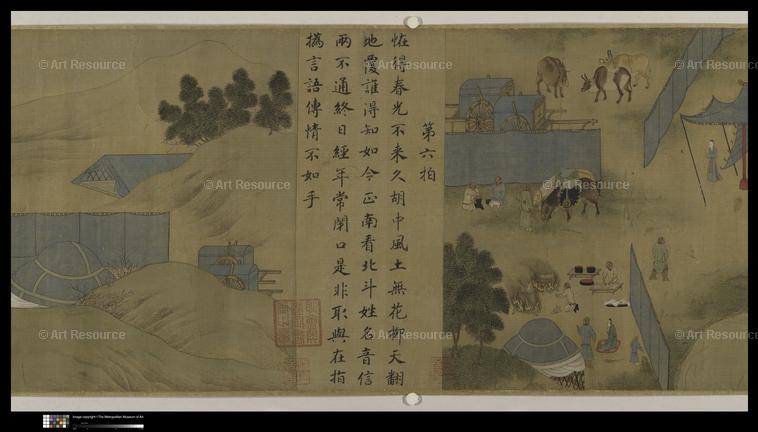 第六拍
恠得春光不来久胡中風土無花柳天翻
地覆誰得知如今正南看北斗姓名音信
兩不通終日經年常閉口是非取與在指
撝言語傳情不如手
© Art Resource
© Art Resource
© Art Resource
© Art Resource
© Art Resource
© Art Resource
© Art Resource
© Art Resource
© Art Resource
© Art Resource
© Art Resource
© Art Resource
Image copyright © The Metropolitan Museum of Art